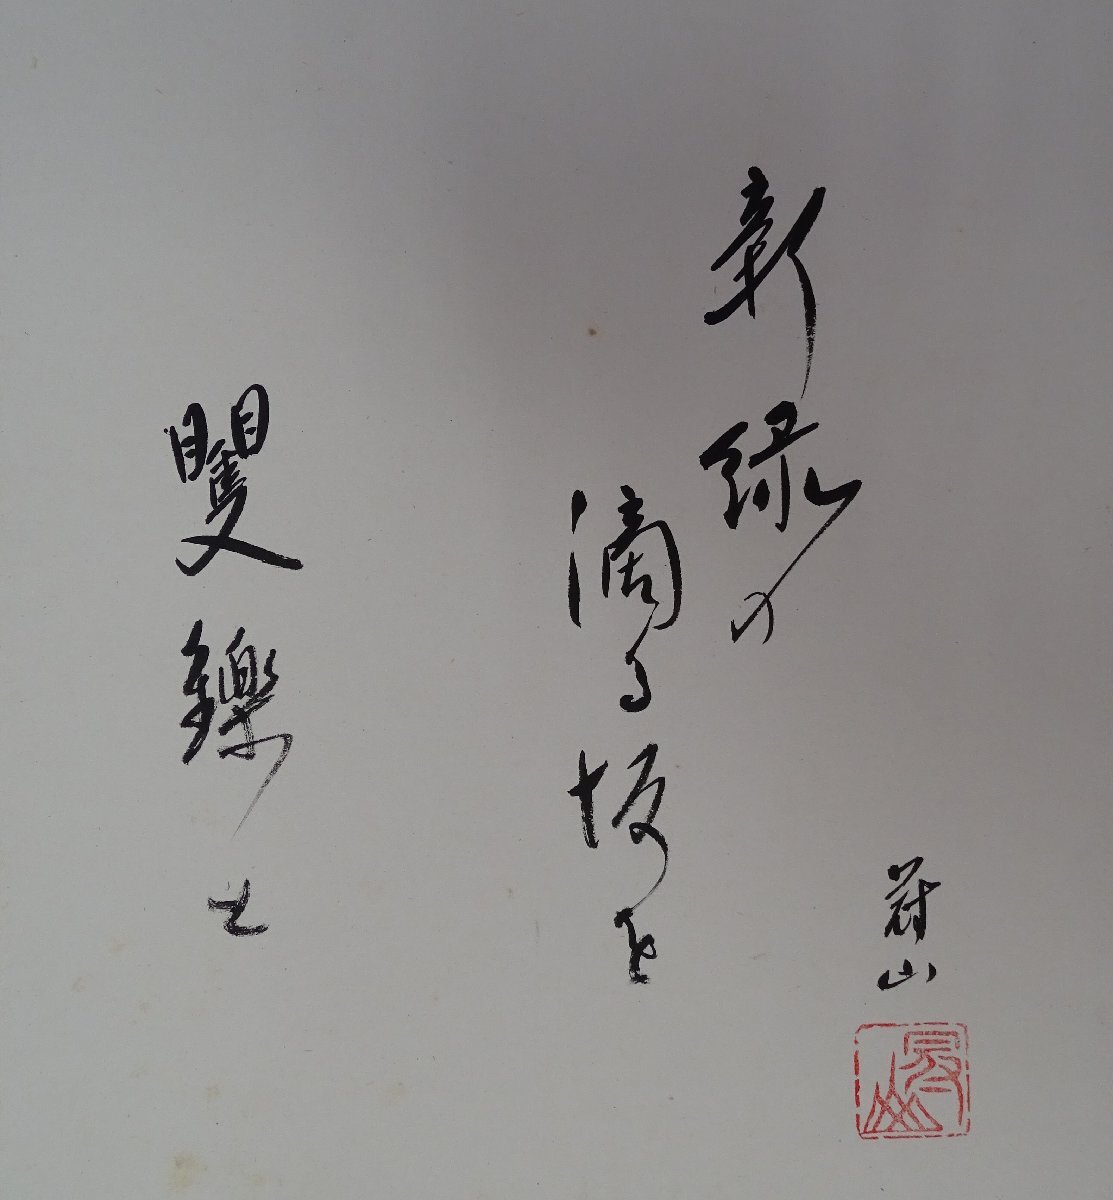 新緑の
滴る坂を
矍鑠と
冠山